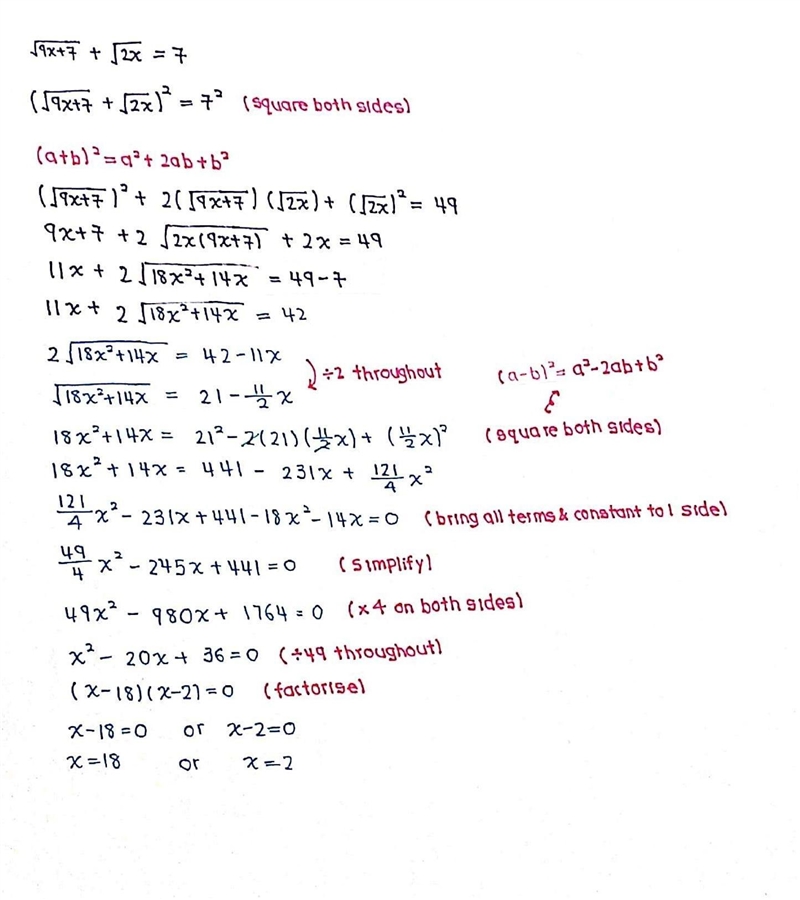 √9x+7 + √2x = 7
(√9x+7 + √2x)² = 7² (square both sides)
(a+b)² = a² + 2ab + b²
(√9x+7)² + 2(√9x+7)(√2x) + (√2x)² = 49
9x+7 + 2√2x(9x+7) + 2x = 49
11x + 2√18x²+14x = 49-7
11x + 2√18x²+14x = 42
2√18x²+14x = 42-11x
÷2 throughout
(a-b)² = a²-2ab+b²
√18x²+14x = 21 - 11/2 x
18x²+14x = 21² - 2(21)(11/2 x) + (11/2 x)² (square both sides)
18x² + 14x = 441 - 231x + 121/4 x²
121/4 x² - 231x + 441 - 18x² - 14x = 0 (bring all terms & constant to 1 side)
49/4 x² - 245x + 441 = 0 (simplify)
49x² - 980x + 1764 = 0 (x4 on both sides)
x² - 20x + 36 = 0 (÷49 throughout)
(x-18)(x-2) = 0 (factorise)
x-18=0 or x-2=0
x=18 or x=2